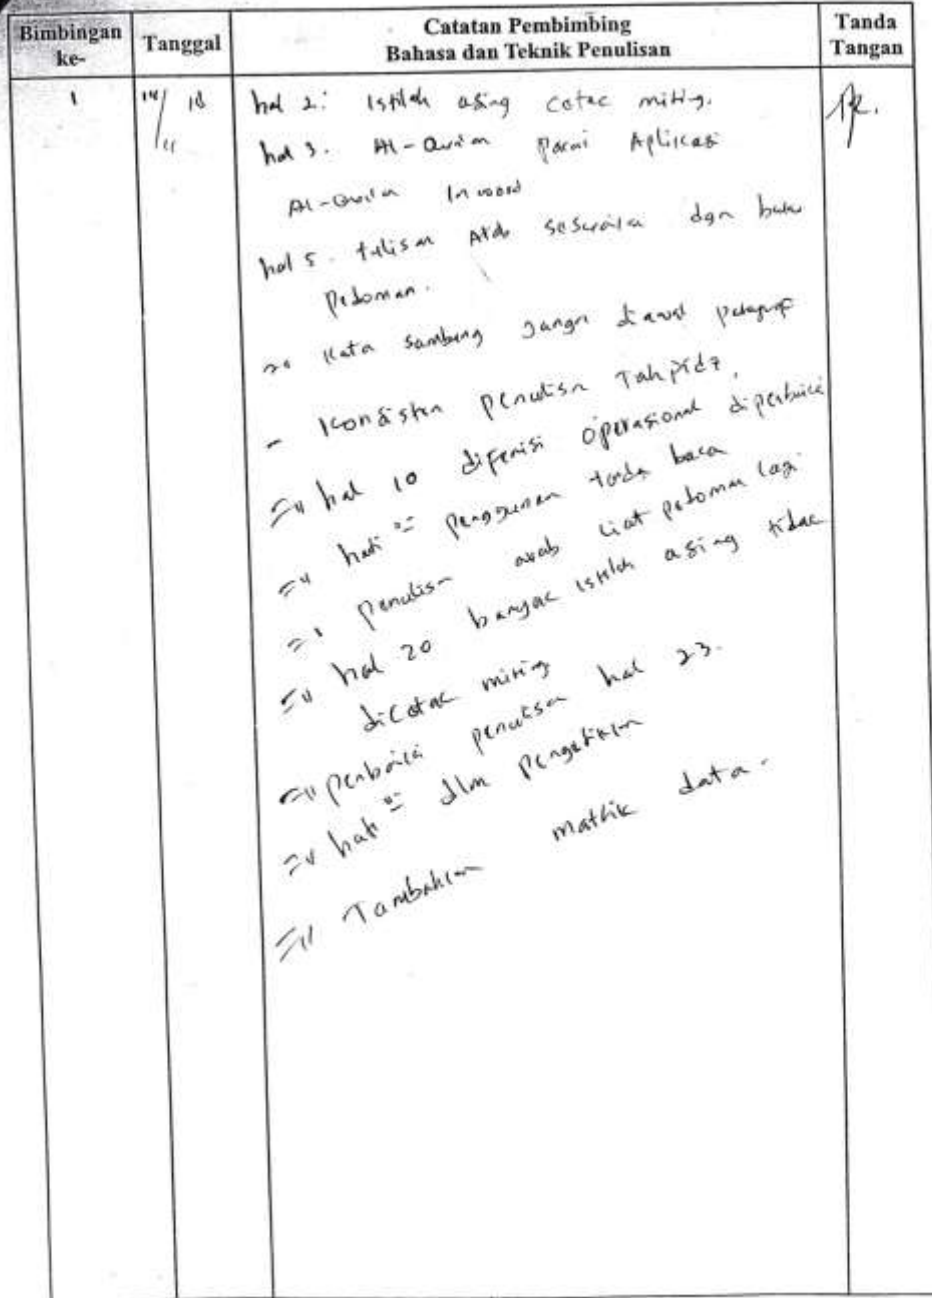 Bimbingan ke-
Tanggal
Catatan Pembimbing
Bahasa dan Teknik Penulisan
Tanda Tangan
1
hal 2: Istilah asing cetac miring.
hal 3. Al-Qur'an Pakai Aplikasi
Al-Qur'an In word
hal 5. tulisan sesuaikan dgn buku
Pedoman.
Kata sambung jangn diawal paragraf
- Konsisten penulisn Tahpidz.
=" hal 10 difenisi operasional diperbaiki
=" hati" penggunaan tanda baca
=" penulisn arab liat pedoman lagi
=" hal 20 banyac istilah asing tidac
dicetac miring
=" perbaiki penulisn hal 23.
=" hati" dlm pengetikan
=" Tambahkan data.